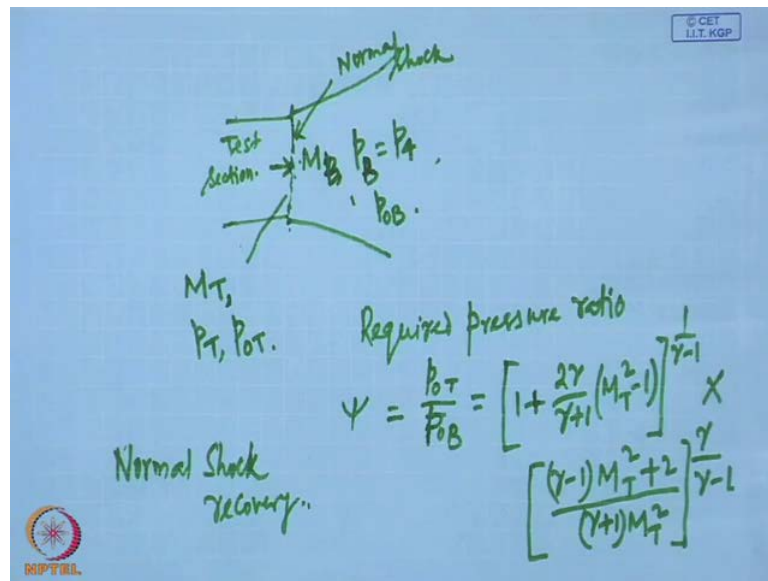 © CET
I.I.T. KGP
Normal
Shock
Test
Section.
M_B, p_B = p_4,
p_{0B}.
M_T,
p_T, p_{0T}.
Required pressure ratio
Ψ = p_{0T}/p_{0B} = [1 + 2γ/(γ+1) (M_T^2 - 1)]^{1/(γ-1)} ×
[((γ-1) M_T^2 + 2)/((γ+1) M_T^2)]^{γ/(γ-1)}
Normal Shock
recovery..
NPTEL